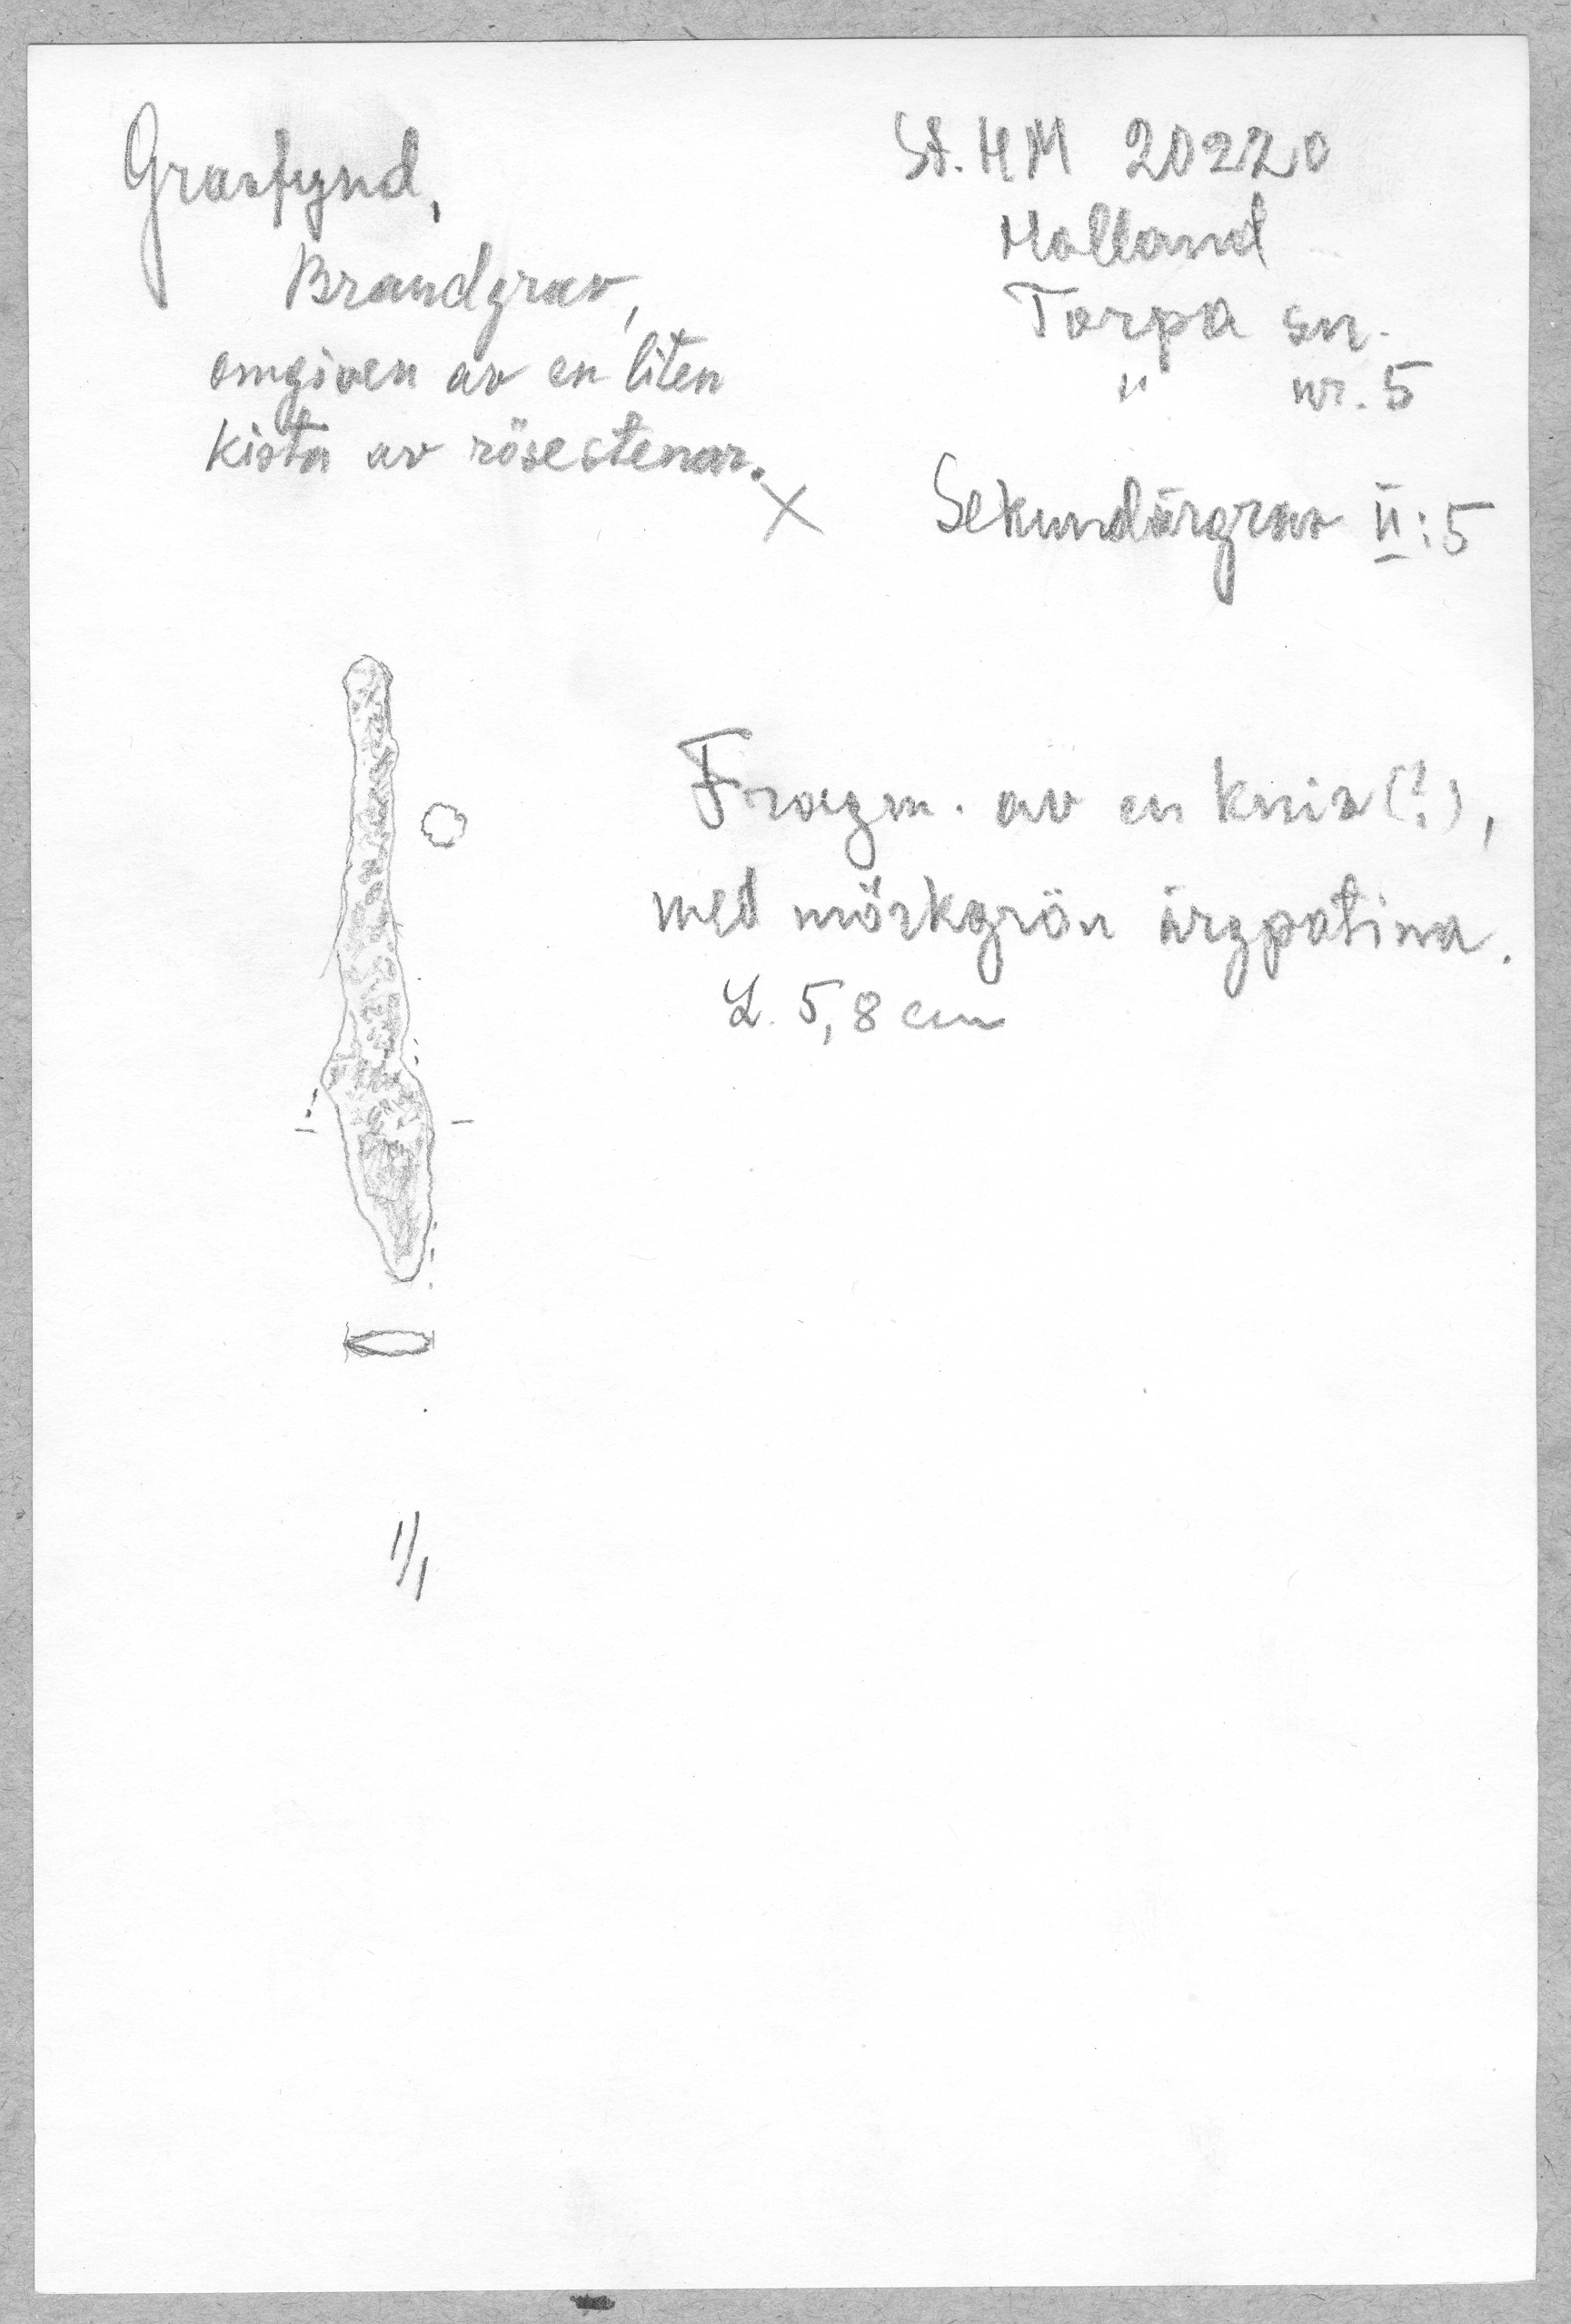 Gravfynd,
Brandgrav,
omgiven av en liten
kista av rösestenar.
St. HM 20220
Halland
Torpa sn.
" nr. 5
Sekundärgrav II:5
Fragm. av en kniv(?),
med mörkgrön ärgpatina.
L. 5,8 cm
1/1